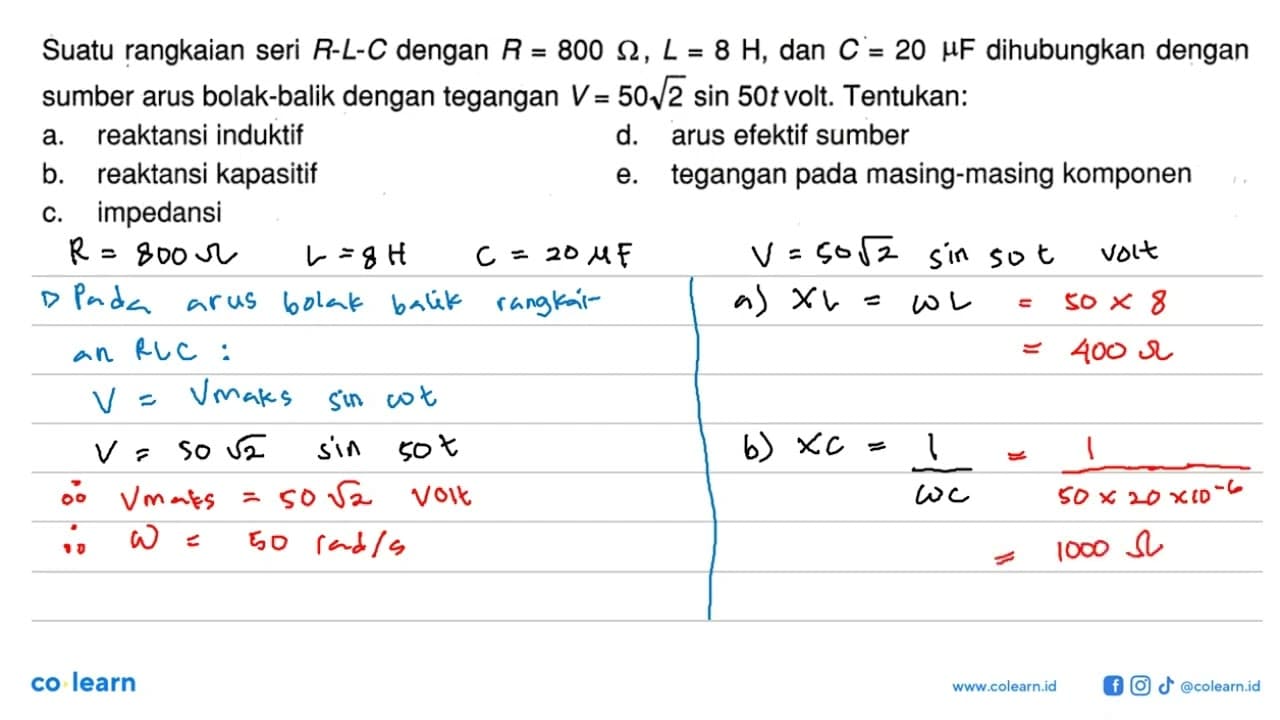 Suatu rangkaian seri R-L-C dengan R = 800 Ω, L = 8 H, dan C = 20 μF dihubungkan dengan
sumber arus bolak-balik dengan tegangan V = 50√2 sin 50t volt. Tentukan:
a. reaktansi induktif
b. reaktansi kapasitif
c. impedansi
d. arus efektif sumber
e. tegangan pada masing-masing komponen
R = 800 Ω L = 8 H C = 20 μF V = 50√2 sin 50t volt
▷ Pada arus bolak balik rangkai-
an RLC :
V = Vmaks sin ωt
V = 50√2 sin 50t
∴ Vmaks = 50√2 Volt
∴ ω = 50 rad/s
a) XL = ωL = 50 × 8
= 400 Ω
b) XC = 1/ωC = 1/50 × 20 × 10^-6
= 1000 Ω
co learn
www.colearn.id @colearn.id